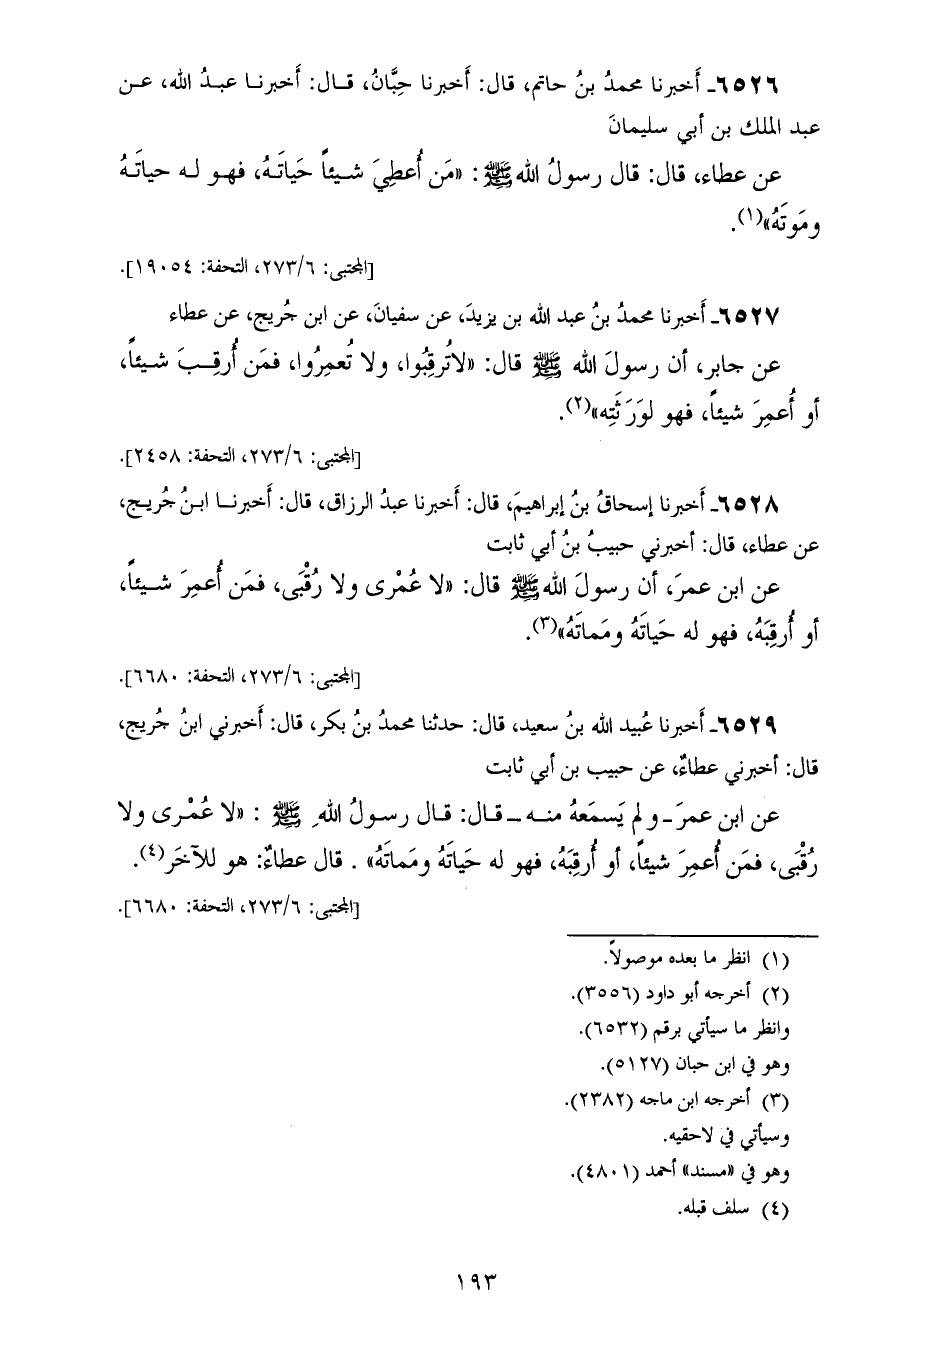 ٦٥٢٦ـ أَخبرنا محمدُ بنُ حاتم، قال: أَخبرنا حِبَّانُ، قـال: أَخبرنـا عبـدُ الله، عـن
عبد الملك بن أبي سليمانَ
عن عطاء، قال: قال رسولُ الله ﷺ : «مَن أُعطِيَ شـيئاً حَياتَـهُ، فهـو لـه حياتَـهُ
ومَوتَهُ»(١).
[المجتبى: ٢٧٣/٦، التحفة: ١٩٠٥٤].
٦٥٢٧ـ أَخبرنا محمدُ بنُ عبد الله بن يزيدَ، عن سفيانَ، عن ابن جُريج، عن عطاء
عن جابر، أن رسولَ الله ﷺ قال: «لاتُرقِبُوا، ولا تُعمِرُوا، فمَن أُرقِـبَ شـيئاً،
أو أُعمِرَ شيئاً، فهو لوَرَثَتِه»(٢).
[المجتبى: ٢٧٣/٦، التحفة: ٢٤٥٨].
٦٥٢٨ـ أَخبرنا إسحاقُ بنُ إبراهيمَ، قال: أَخبرنا عبدُ الرزاق، قال: أَخبرنـا ابـنُ جُريـج،
عن عطاء، قال: أخبرني حبيبُ بنُ أبي ثابت
عن ابن عمرَ، أن رسولَ الله ﷺ قال: «لا عُمْرى ولا رُقْبَى، فمَن أُعمِرَ شـيئاً،
أو أُرقِبَهُ، فهو له حَياتَهُ ومَماتَهُ»(٣).
[المجتبى: ٢٧٣/٦، التحفة: ٦٦٨٠].
٦٥٢٩ـ أَخبرنا عُبيد الله بنُ سعيد، قال: حدثنا محمدُ بنُ بكر، قال: أَخبرني ابنُ جُريج،
قال: أخبرني عطاءٌ، عن حبيب بن أبي ثابت
عن ابن عمرَ ـ ولم يَسمَعهُ منـه ـ قـال: قـال رسـولُ اللهِ ﷺ : «لا عُمْـرى ولا
رُقْبَى، فمَن أُعمِرَ شيئاً، أو أُرقِبَهُ، فهو له حَياتَهُ ومَماتَهُ» . قال عطاءٌ: هو للآخَر(٤).
[المجتبى: ٢٧٣/٦، التحفة: ٦٦٨٠].
(١) انظر ما بعده موصولاً.
(٢) أخرجه أبو داود (٣٥٥٦).
وانظر ما سيأتي برقم (٦٥٣٢).
وهو في ابن حبان (٥١٢٧).
(٣) أخرجه ابن ماجه (٢٣٨٢).
وسيأتي في لاحقيه.
وهو في «مسند» أحمد (٤٨٠١).
(٤) سلف قبله.
١٩٣